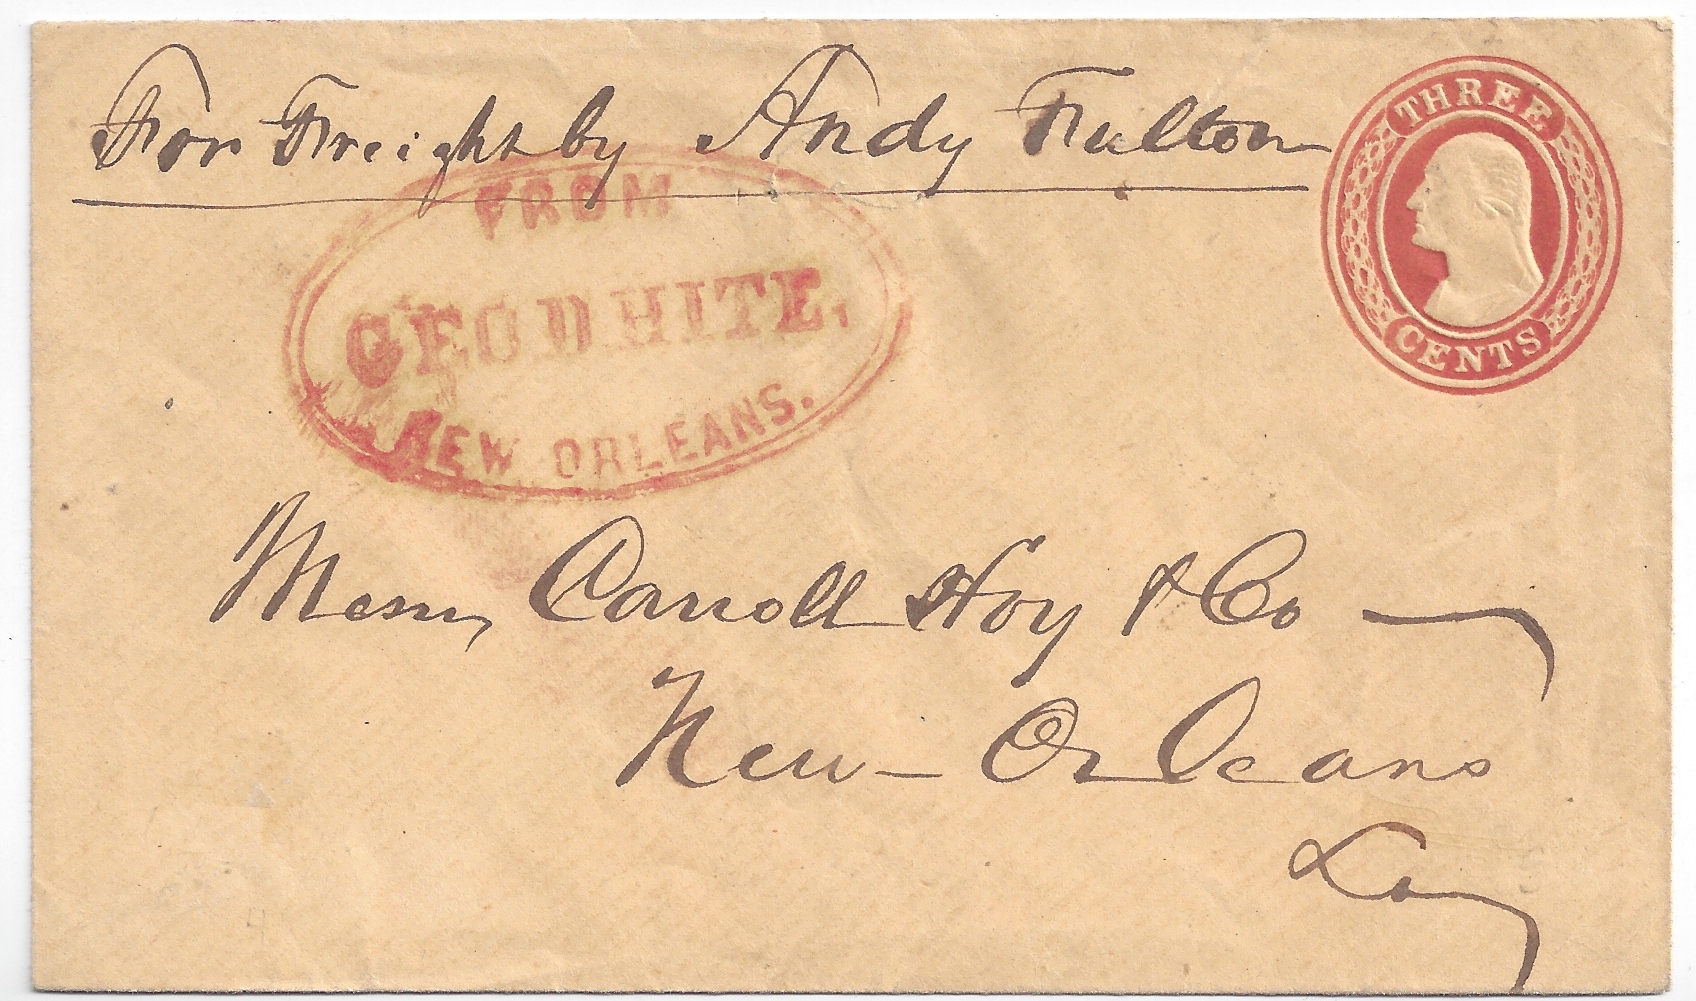 For Freight by Andy Fulton
THREE
CENTS
FROM
GEO D HITE,
NEW ORLEANS.
Messrs, Carroll Hoy & Co
New-Orleans
La